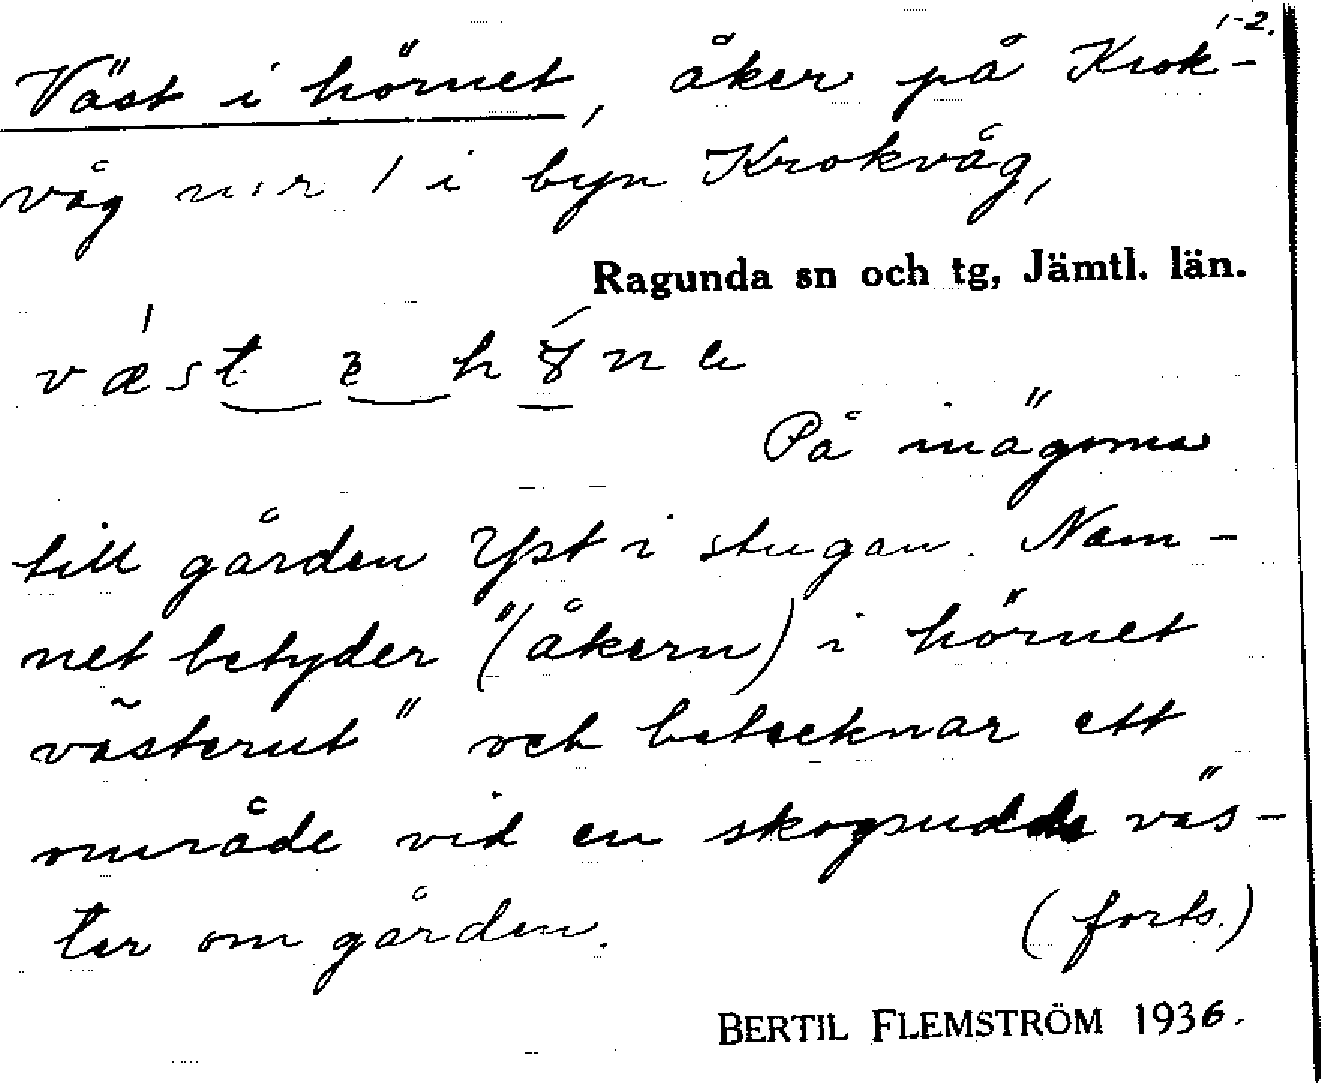 1-2.
Väst i hörnet, åker på Krok-
våg n:r 1 i byn Krokvåg,
Ragunda sn och tg, Jämtl. län.
På inägorna
till gården Yst i stugan. Nam-
net betyder "(åkern) i hörnet
västerut" och betecknar ett
område vid en skogsudde väs-
ter om gården.
(forts.)
BERTIL FLEMSTRÖM 1936.